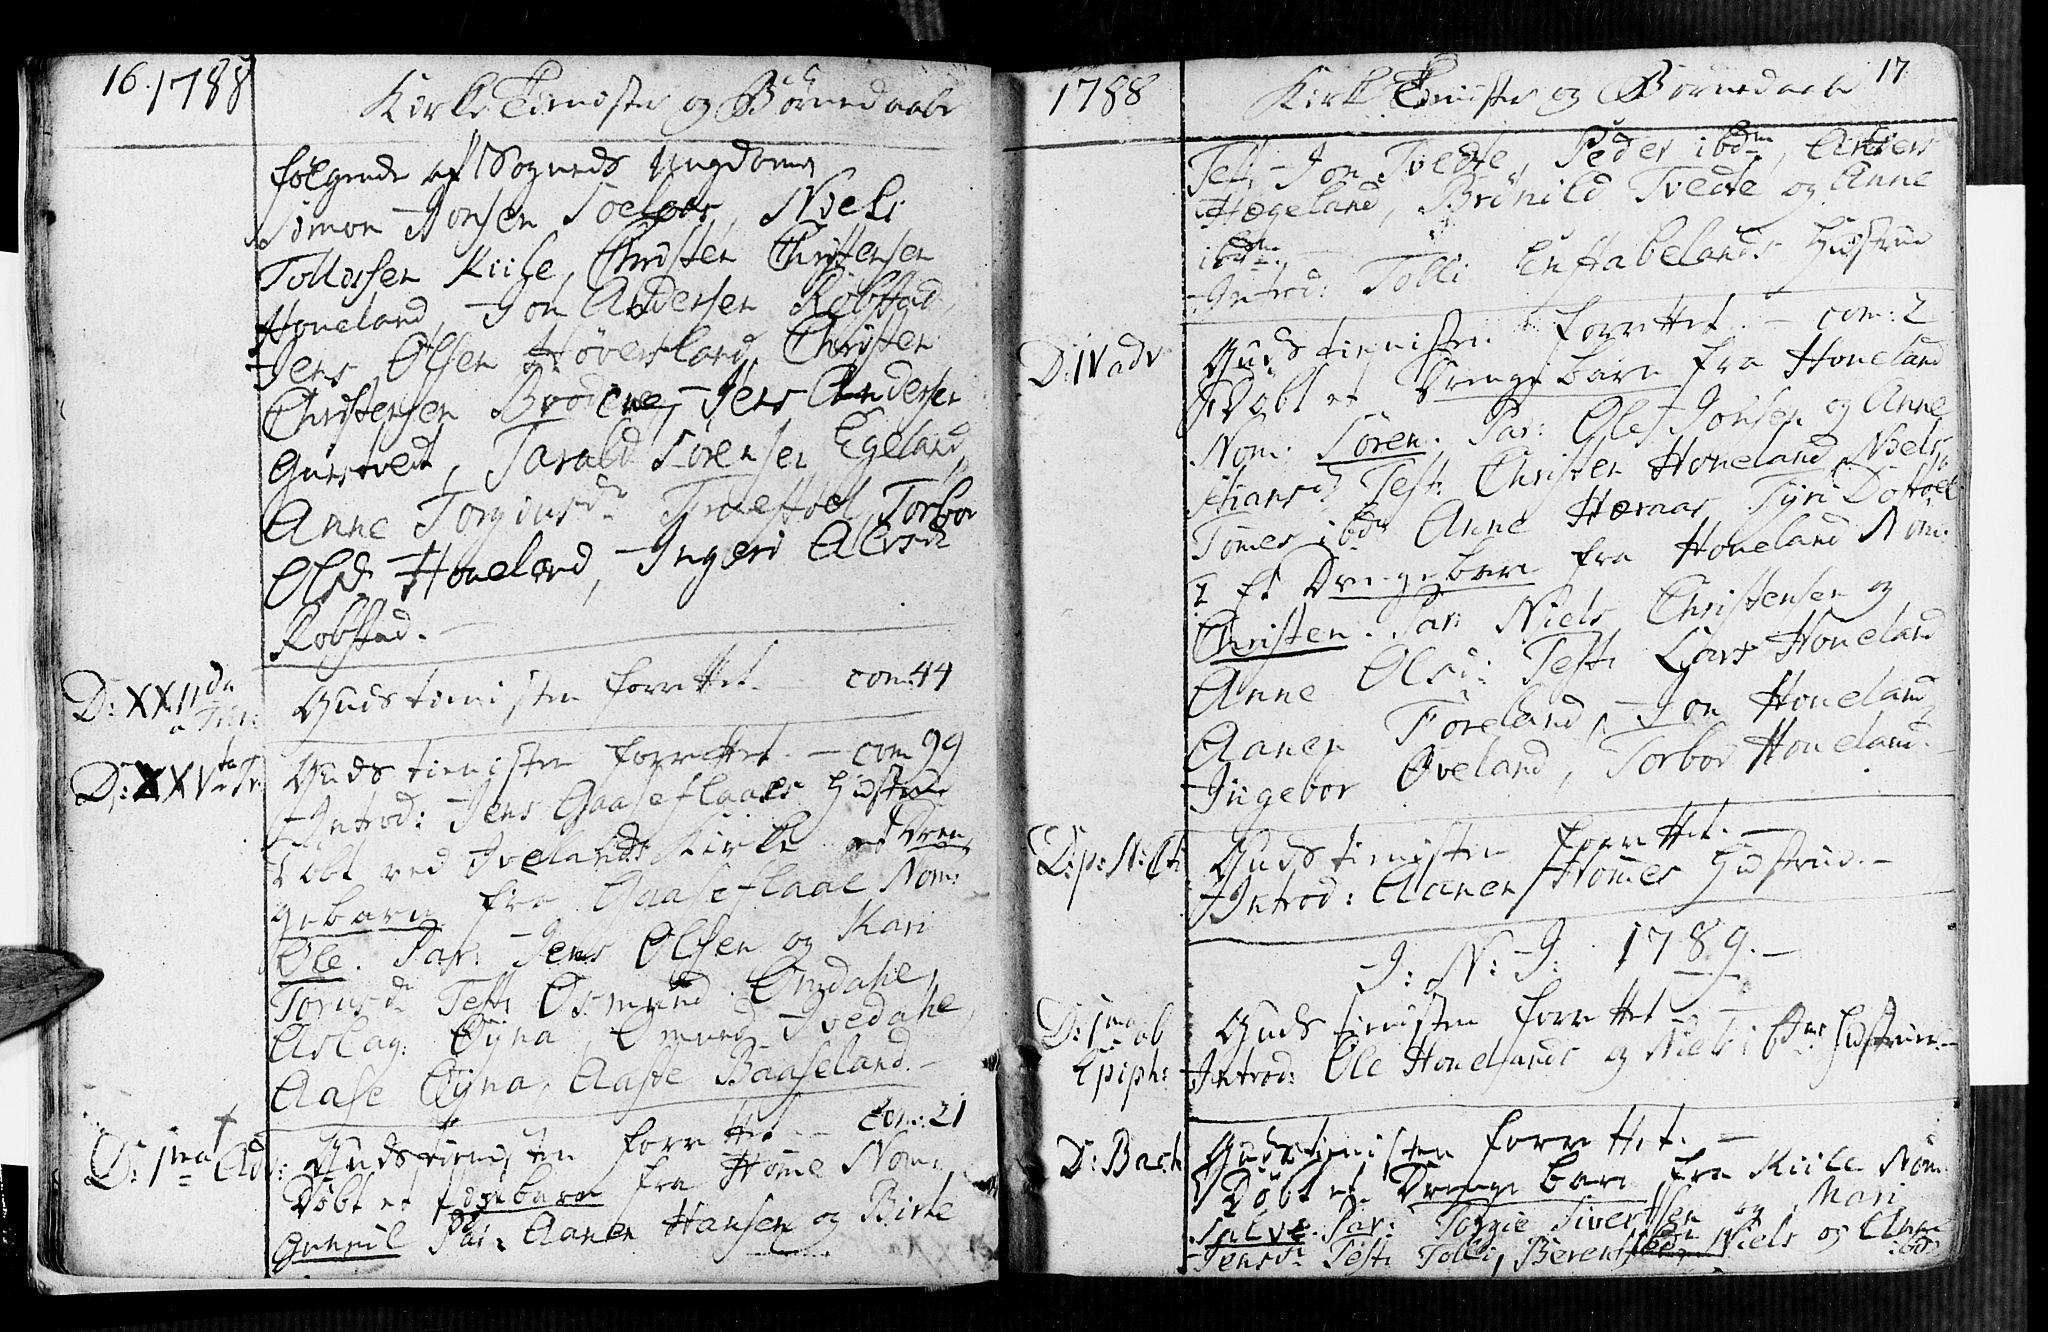 16. 1788
Kirke Tienister og Børnedaabe
følgende af Sognets Ungdom
Simon Jonsen Toelaas, Niels
Tollissen Kiile, Christen Christensen
Honeland, Jon Andersen Robstad,
Jens Olsen Høversland, Christen
Christensen Brødene, Jens Andersen
Gurstvedt, Tarald Sørensen Egeland,
Anne Torgiusdr Truestoel, Torbor
Olsd. Honeland, Ingeri Alfsdr
Robstad.
D: XXIIda a Trin: Guds tienisten forrettet. com: 44
D: XXVta Tr. Guds tienisten forrettet. — com 99
Introd: Jens Gaaseflaaes Hustrue
Døbt ved Ivelands Kirke et Dren
gebarn fra Gaaseflaae Nom:
Ole. Par: Jens Olsen og Kari
Torusdr Test: Osmund Omdahl,
Aslag Øyna, Omund Ivedahl,
Aase Øyna, Aaste Baaseland. —
D: 1ma Adv: Guds tienisten forrettet — com: 21
Døbt et Pigebarn fra Home Nom:
Gunvil Par: Aanen Hansen og Birte
1788
Kirke Tienister og Børnedaabe 17
Test. Jon Tvedte, Peder ibdm, Anders
Hægeland, Brønild Tvedte og Anne
ibdm.
Introd: Tolli Enstabelands Hustrue
D: IV adv Guds tienisten forrettet. — com: 2
Døbt et Drengebarn fra Honeland
Nom. Søren. Par: Ole Jonsen og Anne
Hansd. Test: Christen Honeland, Niels,
Tomes ibdm Anne Hæraas, Tyri Dostøel
2 Et Drengebarn fra Honeland Nom.
Christen. Par: Niels Christensen og
Anne Olsd: Test: Lars Honeland
Aanen Foreland, Jon Honeland,
Ingebor Øveland, Torbor Honeland.
D: p: N: Chti Guds tienisten forrettet. —
Introd: Aanen Homes Hustrue. —
I: N: I: 1789. —
D: 1ma ab Epiph: Guds tienisten forrettet —
Introd: Ole Honelands og Niels ibdms Hustruer. —
D: Bach Guds tienisten forrettet. —
Døbt et Drengebarn fra Kiile Nom.
Salve. Par: Torgie Sivertsen og Mari
Jensdr Test: Tolli, Berent, Niels og Anne
ibd